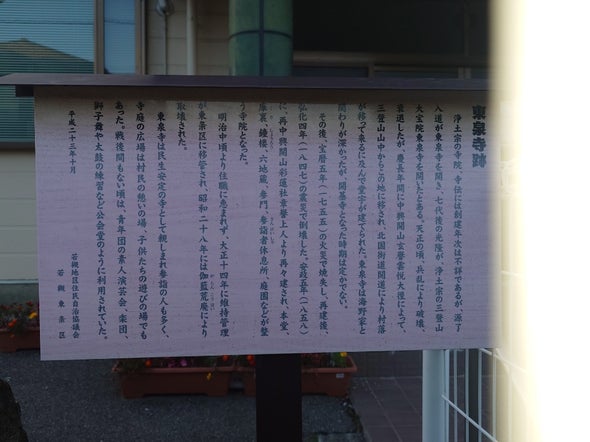 東泉寺跡
浄土宗の寺院。寺伝には創建年次は不詳であるが、源了
入道が東泉寺を開き、七代後の光隆が、浄土宗の三登山
大宝院東泉寺を開いたとある。天正の頃、兵乱により破壊、
衰退したが、慶長年間に中興開山玄誉雲悦大徑によって、
三登山山中からこの地に移され、北国街道開道により村落
が移って来るに及んで堂宇が建てられた。東泉寺は海野家と
関わりが深かったが、開基寺となった時期は定かでない。
その後、宝暦五年(一七五五)の火災で焼失し、再建後、
弘化四年(一八四七)の震災で倒壊した。安政五年(一八五八)
に、再中興開山彩蓮社章誉上人より再々建され、本堂、
庫裏、鐘楼、六地蔵、参門、参詣者休息所、庭園などが整
う寺院となった。
明治中頃より住職に恵まれず、大正十四年に維持管理
が東条区に移管され、昭和二十八年には伽藍荒廃により
取壊された。
東泉寺は民生安定の寺として親しまれ参詣の人も多く、
寺庭の広場は村民の憩いの場、子供たちの遊びの場でも
あった。戦後間もない頃は、青年団の素人演芸会、楽団、
獅子舞や太鼓の練習など公会堂のように利用されていた。
平成二十三年十月
若槻地区住民自治協議会
若槻東条区